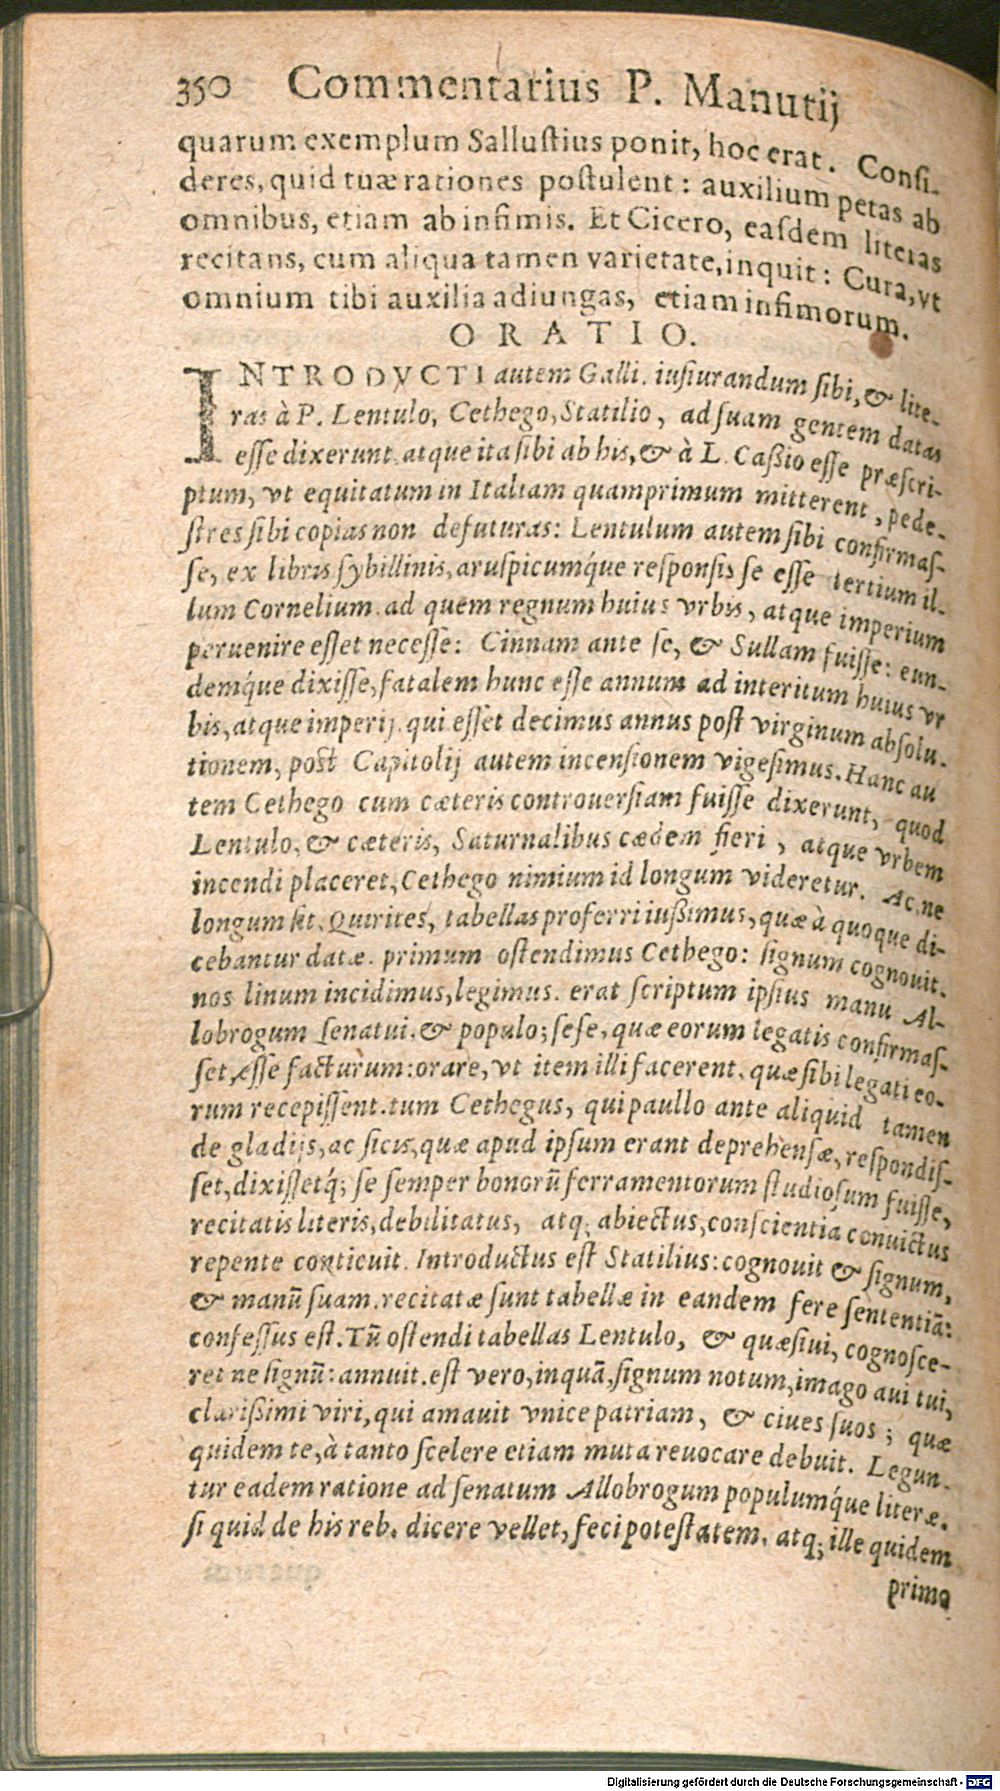 350 Commentarius P. Manutij
quarum exemplum Sallustius ponit, hoc erat. Consi-
deres, quid tuæ rationes postulent: auxilium petas ab
omnibus, etiam ab infimis. Et Cicero, easdem literas
recitans, cum aliqua tamen varietate, inquit: Cura, vt
omnium tibi auxilia adiungas, etiam infimorum.
ORATIO.
INTRODVCTI autem Galli. iusiurandum sibi, & lite-
ras à P. Lentulo, Cethego, Statilio, ad suam gentem datas
esse dixerunt. atque ita sibi ab his, & à L. Caßio esse præscri-
ptum, vt equitatum in Italiam quamprimum mitterent, pede-
stres sibi copias non defuturas: Lentulum autem sibi confirmas-
se, ex libris sybillinis, aruspicumq́ue responsis se esse tertium il-
lum Cornelium. ad quem regnum huius vrbis, atque imperium
peruenire esset necesse: Cinnam ante se, & Sullam fuisse: eun-
demq́ue dixisse, fatalem hunc esse annum ad interitum huius vr
bis, atque imperij. qui esset decimus annus post virginum absolu-
tionem, post Capitolij autem incensionem vigesimus. Hanc au
tem Cethego cum cæteris controuersiam fuisse dixerunt, quod
Lentulo, & cæteris, Saturnalibus cædem fieri, atque vrbem
incendi placeret, Cethego nimium id longum videretur. Ac, ne
longum sit, Quirites, tabellas proferri iußimus, quæ à quoque di-
cebantur datæ. primum ostendimus Cethego: signum cognouit.
nos linum incidimus, legimus. erat scriptum ipsius manu Al-
lobrogum senatui, & populo; sese, quæ eorum legatis confirmas-
set, esse facturum: orare, vt item illi facerent, quæ sibi legati eo-
rum recepissent. tum Cethegus, qui paullo ante aliquid tamen
de gladijs, ac sicis, quæ apud ipsum erant deprehensæ, respondis-
set, dixissetq́; se semper bonorũ ferramentorum studiosum fuisse,
recitatis literis, debilitatus, atq; abiectus, conscientia conuictus
repente conticuit. Introductus est Statilius: cognouit & signum,
& manũ suam. recitatæ sunt tabellæ in eandem fere sententiã:
confessus est. Tũ ostendi tabellas Lentulo, & quæsiui, cognosce-
ret ne signũ: annuit. est vero, inquã, signum notum, imago aui tui,
clarißimi viri, qui amauit vnice patriam, & ciues suos; quæ
quidem te, à tanto scelere etiam muta reuocare debuit. Legun-
tur eadem ratione ad senatum Allobrogum populumq́ue literæ.
si quid de his reb. dicere vellet, feci potestatem. atq; ille quidem
primo
Digitalisierung gefördert durch die Deutsche Forschungsgemeinschaft - DFG